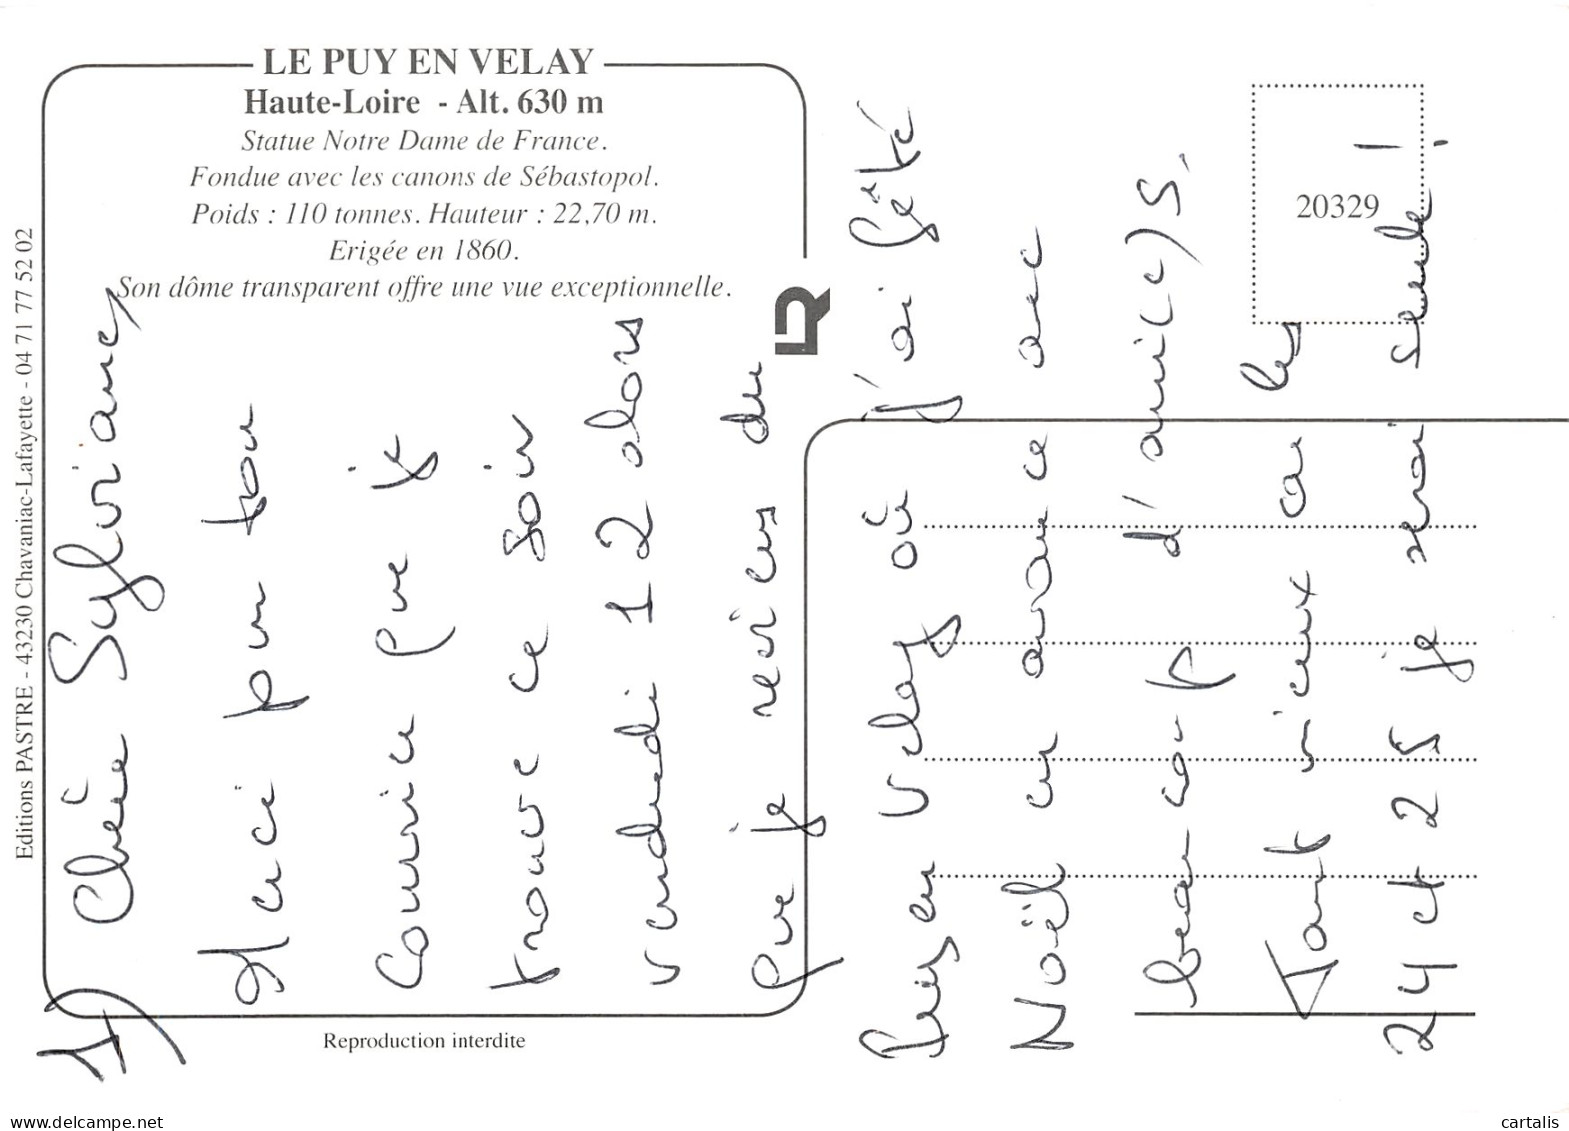 LE PUY EN VELAY
Haute-Loire - Alt. 630 m
Statue Notre Dame de France.
Fondue avec les canons de Sébastopol.
Poids : 110 tonnes. Hauteur : 22,70 m.
Erigée en 1860.
Son dôme transparent offre une vue exceptionnelle.
Editions PASTRE - 43230 Chavaniac-Lafayette - 04 71 77 52 02
LR
20329
Reproduction interdite
1) Chère Sylviane,
Merci pour ton
courrier que je
trouve ce soir
vendredi 12 alors
que je reviens du
Puy en Velay où j'ai fêté
Noël en avance avec
beaucoup d'ami(e)s.
Tant mieux car les
24 et 25 je serai seule !
cartalis